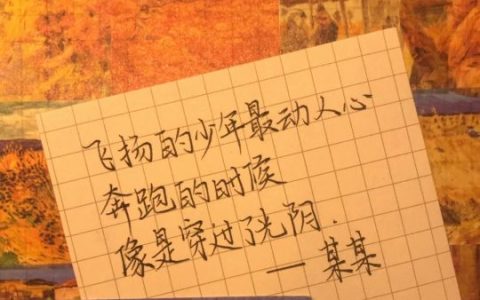 飞扬的少年最动人心
奔跑的时候
像是穿过了光阴.
—某某